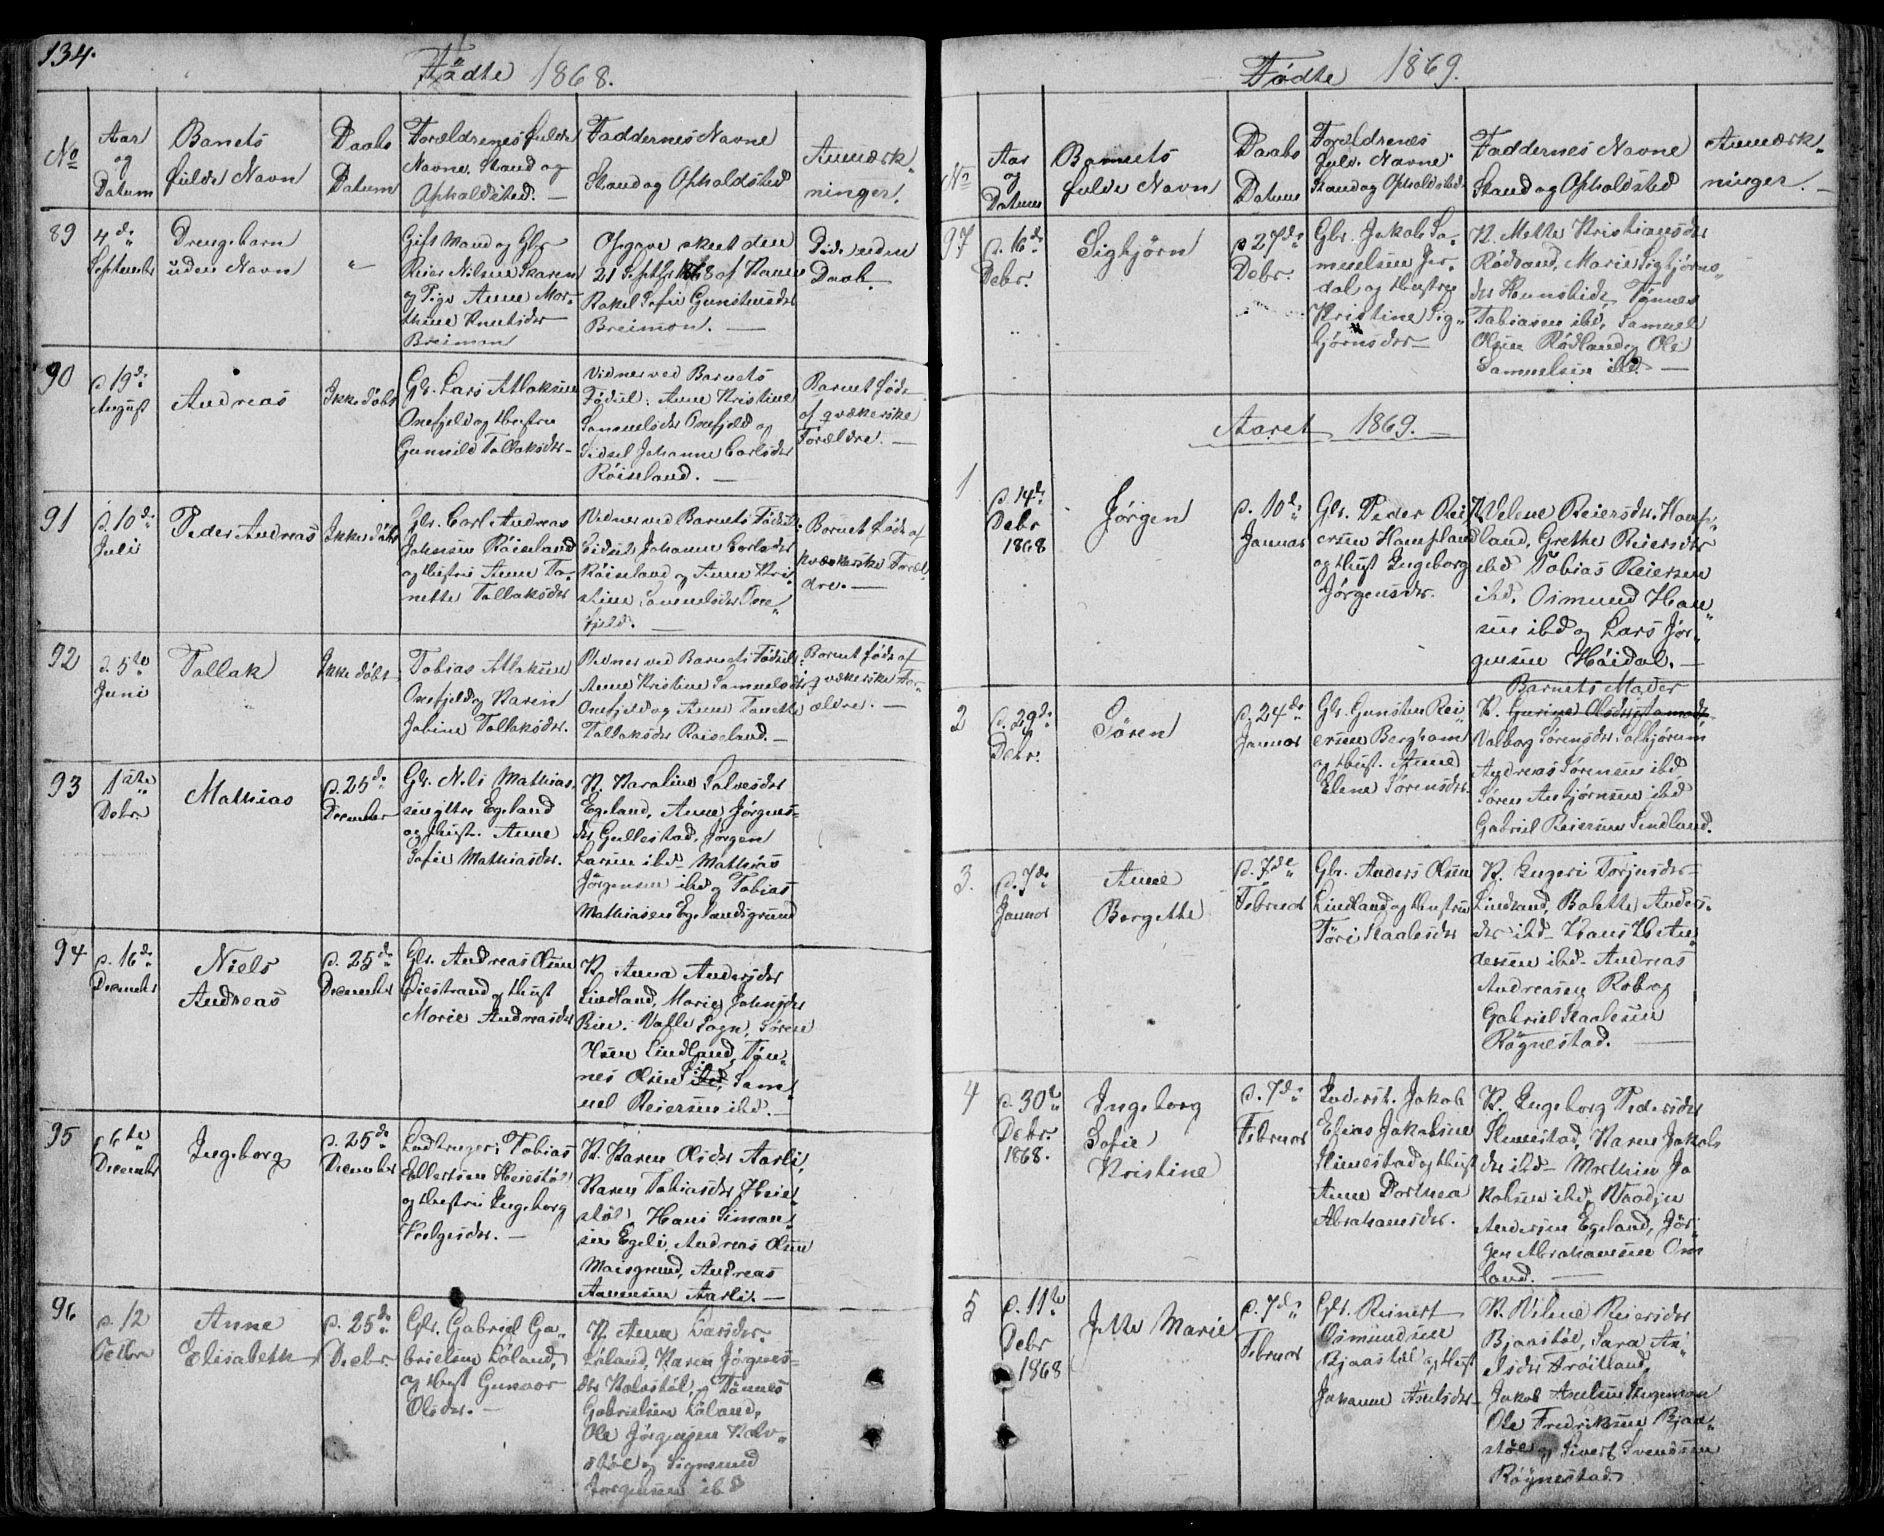 134.
Fødte 1868.
No
Aar og Datum
Barnets fulde Navn
Daabs Datum
Forældrenes fulde Navne, Stand og Opholdsted.
Faddernes Navne Stand og Opholdsted
Anmærkninger.
89
4de September
Drengebarn uden Navn
"
Gift Mand og Gbr
Reier Nilsen Skaren
og Pige Anne Mar-
thine Knutsdr
Breimon
Opgave skeet den
21 Septbr 1868 af Kone
Rakel Sofie Gunstensdr
Breimon. —
Død uden
Daab.
90
d. 19de August
Andreas
Ikke døbt
Gbr. Lars Atlaksen
Onefjeld og Hustru
Gunnild Tallaksdr —
Vidner ved Barnets
Fødsel: Anne Kristine
Samuelsdr Onefjeld og
Sidsel Johanne Carlsdr
Røiseland. —
Barnet født
af qvækerske
Forældre. —
91
d. 10de Juli
Peder Andreas
Ikke døbt
Gbr. Carl Andreas
Johnsen Røiseland
og Hustru Anne To-
nette Tallaksdr
Vidner ved Barnets Fødsel:
Sidsel Johanne Carlsdr
Røiseland og Anne Kri-
stine Samuelsdr One-
fjeld. —
Barnet født af
kvækerske Foræl-
dre. —
92
d. 5te Juni
Tallak
Ikke døbt
Tobias Atlaksen
Onefjeld og Karen
Jobine Tallaksdr.
Vidner ved Barnets Fødsel:
Anne Kristine Samuelsdr
Onefjeld og Anne Tonette
Tallaksdr Røiseland. —
Barnet født af
qvækerske For-
ældre. —
93
1ste Debr
Mathias
d. 25de December
Gbr. Nels Mathias-
sen ytre Egeland
og Hust. Anne
Sofie Mathiasdr.
K. Karoline Salvesdr
Egeland, Anne Jørgens-
dr Gullestad, Jørgen
Larsen ibd Mathias
Jørgensen ibd og Tobias
Mathiasen Egelandsgrund
94
d. 16de December
Niels Andreas
d. 25de December
Gbr. Andreas Olsen
Øiestrand og Hust
Marie Andreasdr
K. Anna Andersdr
Lindland, Marie Johnsdr
Valle Sogn, Søren
Hsen Lindland, Tøn-
nes Olsen ibd, Sam-
uel Reiersen ibd. —
95
d 6te December
Ingeborg
d. 25de December
Tobias
Ellertsen Heiestøl
og Hustru Ingeborg
K. Karen Olsdr Aarli,
Karen Tobiasdr Heie-
støl Hans Simon-
sen Egeli, Andreas Olsen
Moisgrund, Andreas
Aanensen Aarli. —
96
d. 12 Octbr
Anne Elisabeth
d. 25de Decbr.
Gbr. Gabriel Ga-
brielsen Løland,
og Hust Gunvor
Olsdr. —
K. Anne Larsdr
Løland, Karen Jørgens-
dr Kolvstøl, Tønnes
Gabrielsen Løland,
Ole Jørgensen Kolv-
støl og Sigmund
Jørgensen ibd
Fødte 1869.
No
Aar og Datum
Barnets fulde Navn
Daabs Datum
Forældrenes fulde Navne Stand og Opholdsted
Faddernes Navne Stand og Opholdsted
Anmærkninger. —
97
d. 16de Debr.
Sigbjørn
d 27de Debr.
Gbr. Jakob Sa-
muelsen Jer-
dal og Hustru
Kristine Sig-
bjørnsdr —
K. Mette Kristiansdr
Rødland, Marie Sigbjørns-
dr Tønnes
Tobiasen ibd, Samuel
Olsen Rødland og Ole
Samuelsen ibd. —
Aaret 1869. —
1
d. 14de Debr 1868
Jørgen
d. 10de Januar
Gbr. Peder Rei-
ersen Hompland
og Hust Ingeborg
Jørgensdr.
K. Velene Reiersdr. Homp-
land, Grethe Reiersdr
ibd Tobias Reiersen
ibd. Osmund Han-
sen ibd og Lars Jør-
gensen Høidal. —
2
d. 29de Debr.
Søren
d. 24de Januar
Gbr. Gunsten Rei-
ersen Berghom
og Hust. Anne
Elene Sørensdr.
Barnets Moder
K.
Valborg Sørensdr. Solbjørum
Andreas Sørensen ibd
Søren Asbjørnsen ibd
Gabriel Reiersen Lindland.
3.
d. 7de Januar
Anne Bergethe
d. 7de Februar
Gbr. Anders Olsen
Lindland og Hustru
Tøri Staalesdr
K. Ingeri Torjusdr
Lindland, Bolette Anders-
dr ibd Hans H An-
dersen ibd Andreas
Andreasen og
Gabriel Staalesen
Røgnestad. —
4
d. 30te Debr. 1868.
Ingeborg Sofie Kristine
d. 7de Februar
Inderst. Jakob
Elias Jakobsen
Himestad og Hust
Anne Dorthea
Abrahamsdr.
K. Ingeborg Pedersdr
Himestad, Karen Jakobs
dr ibd Mathias Ja
kobsen ibd,
Andersen Egeland, Jør-
gen Abrahamsen Om
land. —
5
d. 11te Debr 1868
Jette Marie
d. 7de Februar
Gbr. Reinert
Osmundsen
Bjaastøl og Hust
Johanne Axelsdr —
K. Vilene Reiersdr
Bjaastøl, Sara
Frøitland,
Jakob Axelsen
Ole Fredriksen Bjaa-
støl og Sivert Svendsen
Røgnestad.